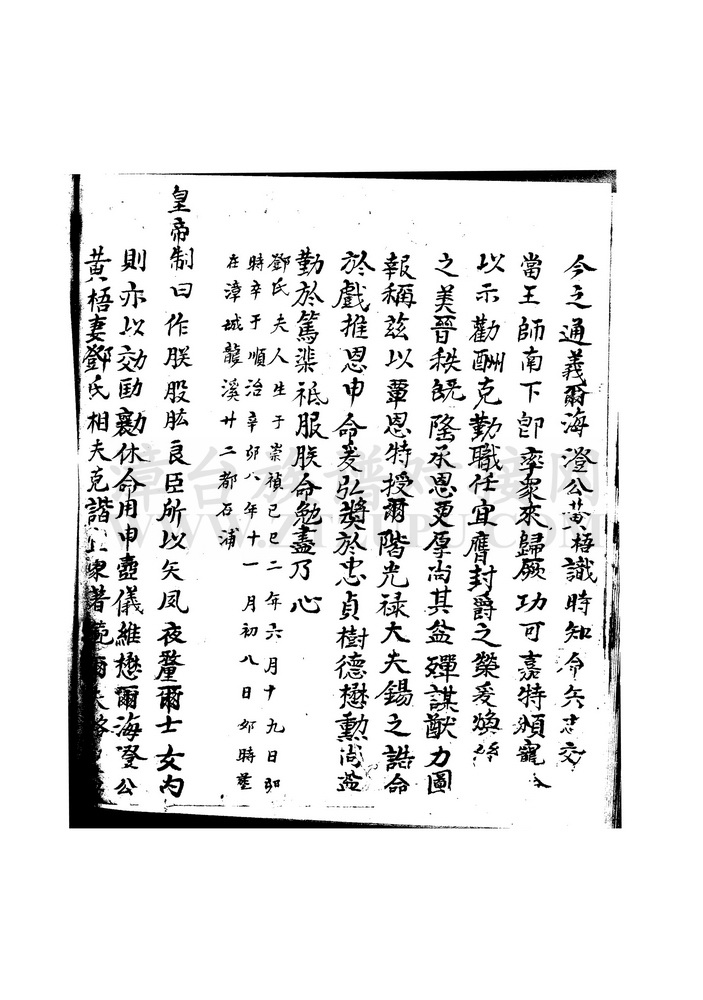 今之通義爾海澄公黃梧識時知命矢志交
當王師南下卽率衆來歸厥功可嘉特頒寵
以示勸酬克勤職任宜膺封爵之榮爰煥絲
之美晉秩旣隆承恩更厚尚其益殫謀猷力圖
報稱茲以覃恩特授爾階光禄大夫錫之誥命
於戲推恩申命爰弘奬於忠貞樹德懋勳尚益
勤於篤棐祗服朕命勉盡乃心
鄧氏夫人生于崇禎己巳二年六月十九日卯
時卒于順治辛卯八年十一月初八日卯時塟
在漳城龍溪廿二都石浦
皇帝制曰作朕股肱良臣所以矢夙夜釐爾士女内
則亦以効劻勷休命用申壼儀維懋爾海澄公
黃梧妻鄧氏相夫克諧著範爾夫